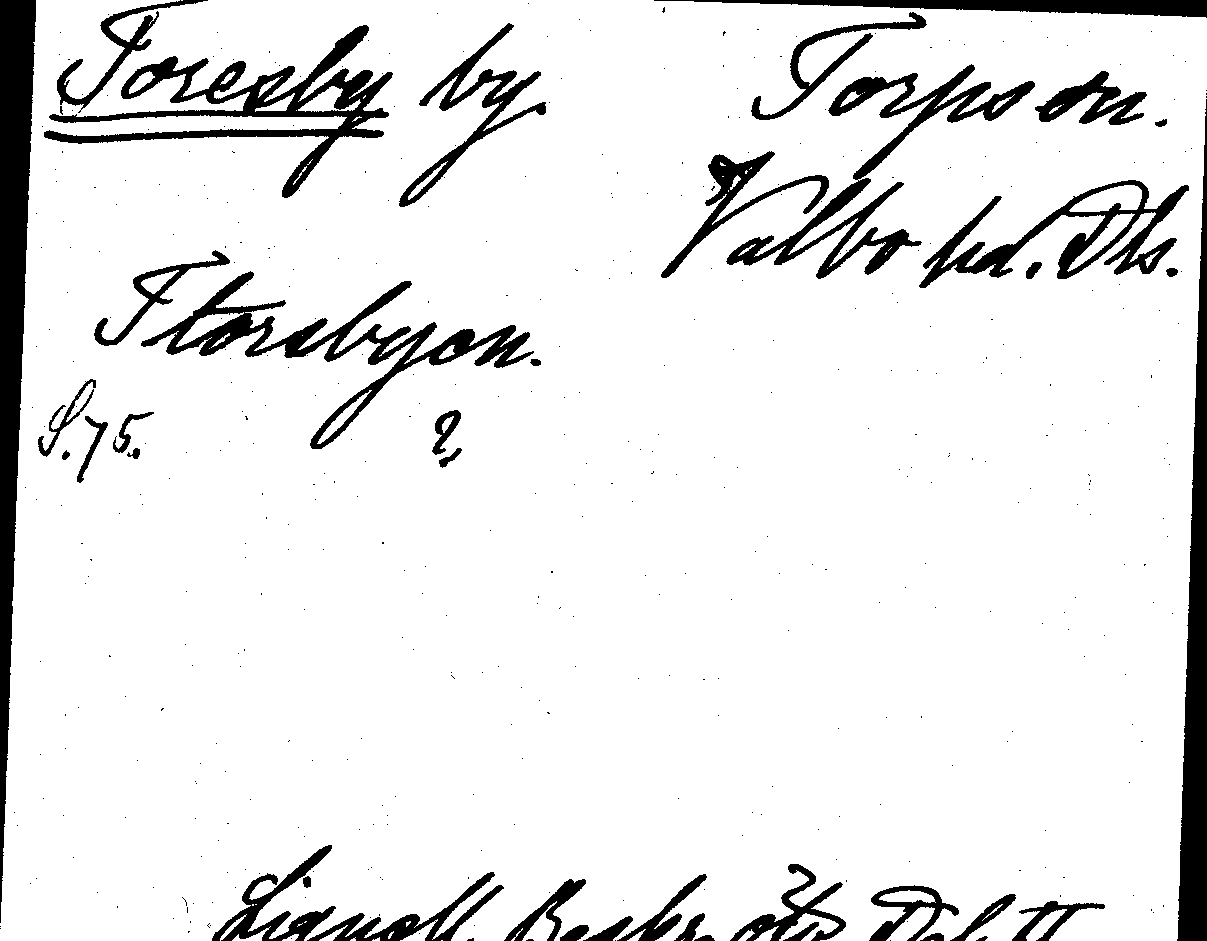 Toresby by
Torps sn.
Valbo hd. Dls.
Ftorsbyon.
S. 75. ?
Lignell, Beskr. öfv. Dal. II